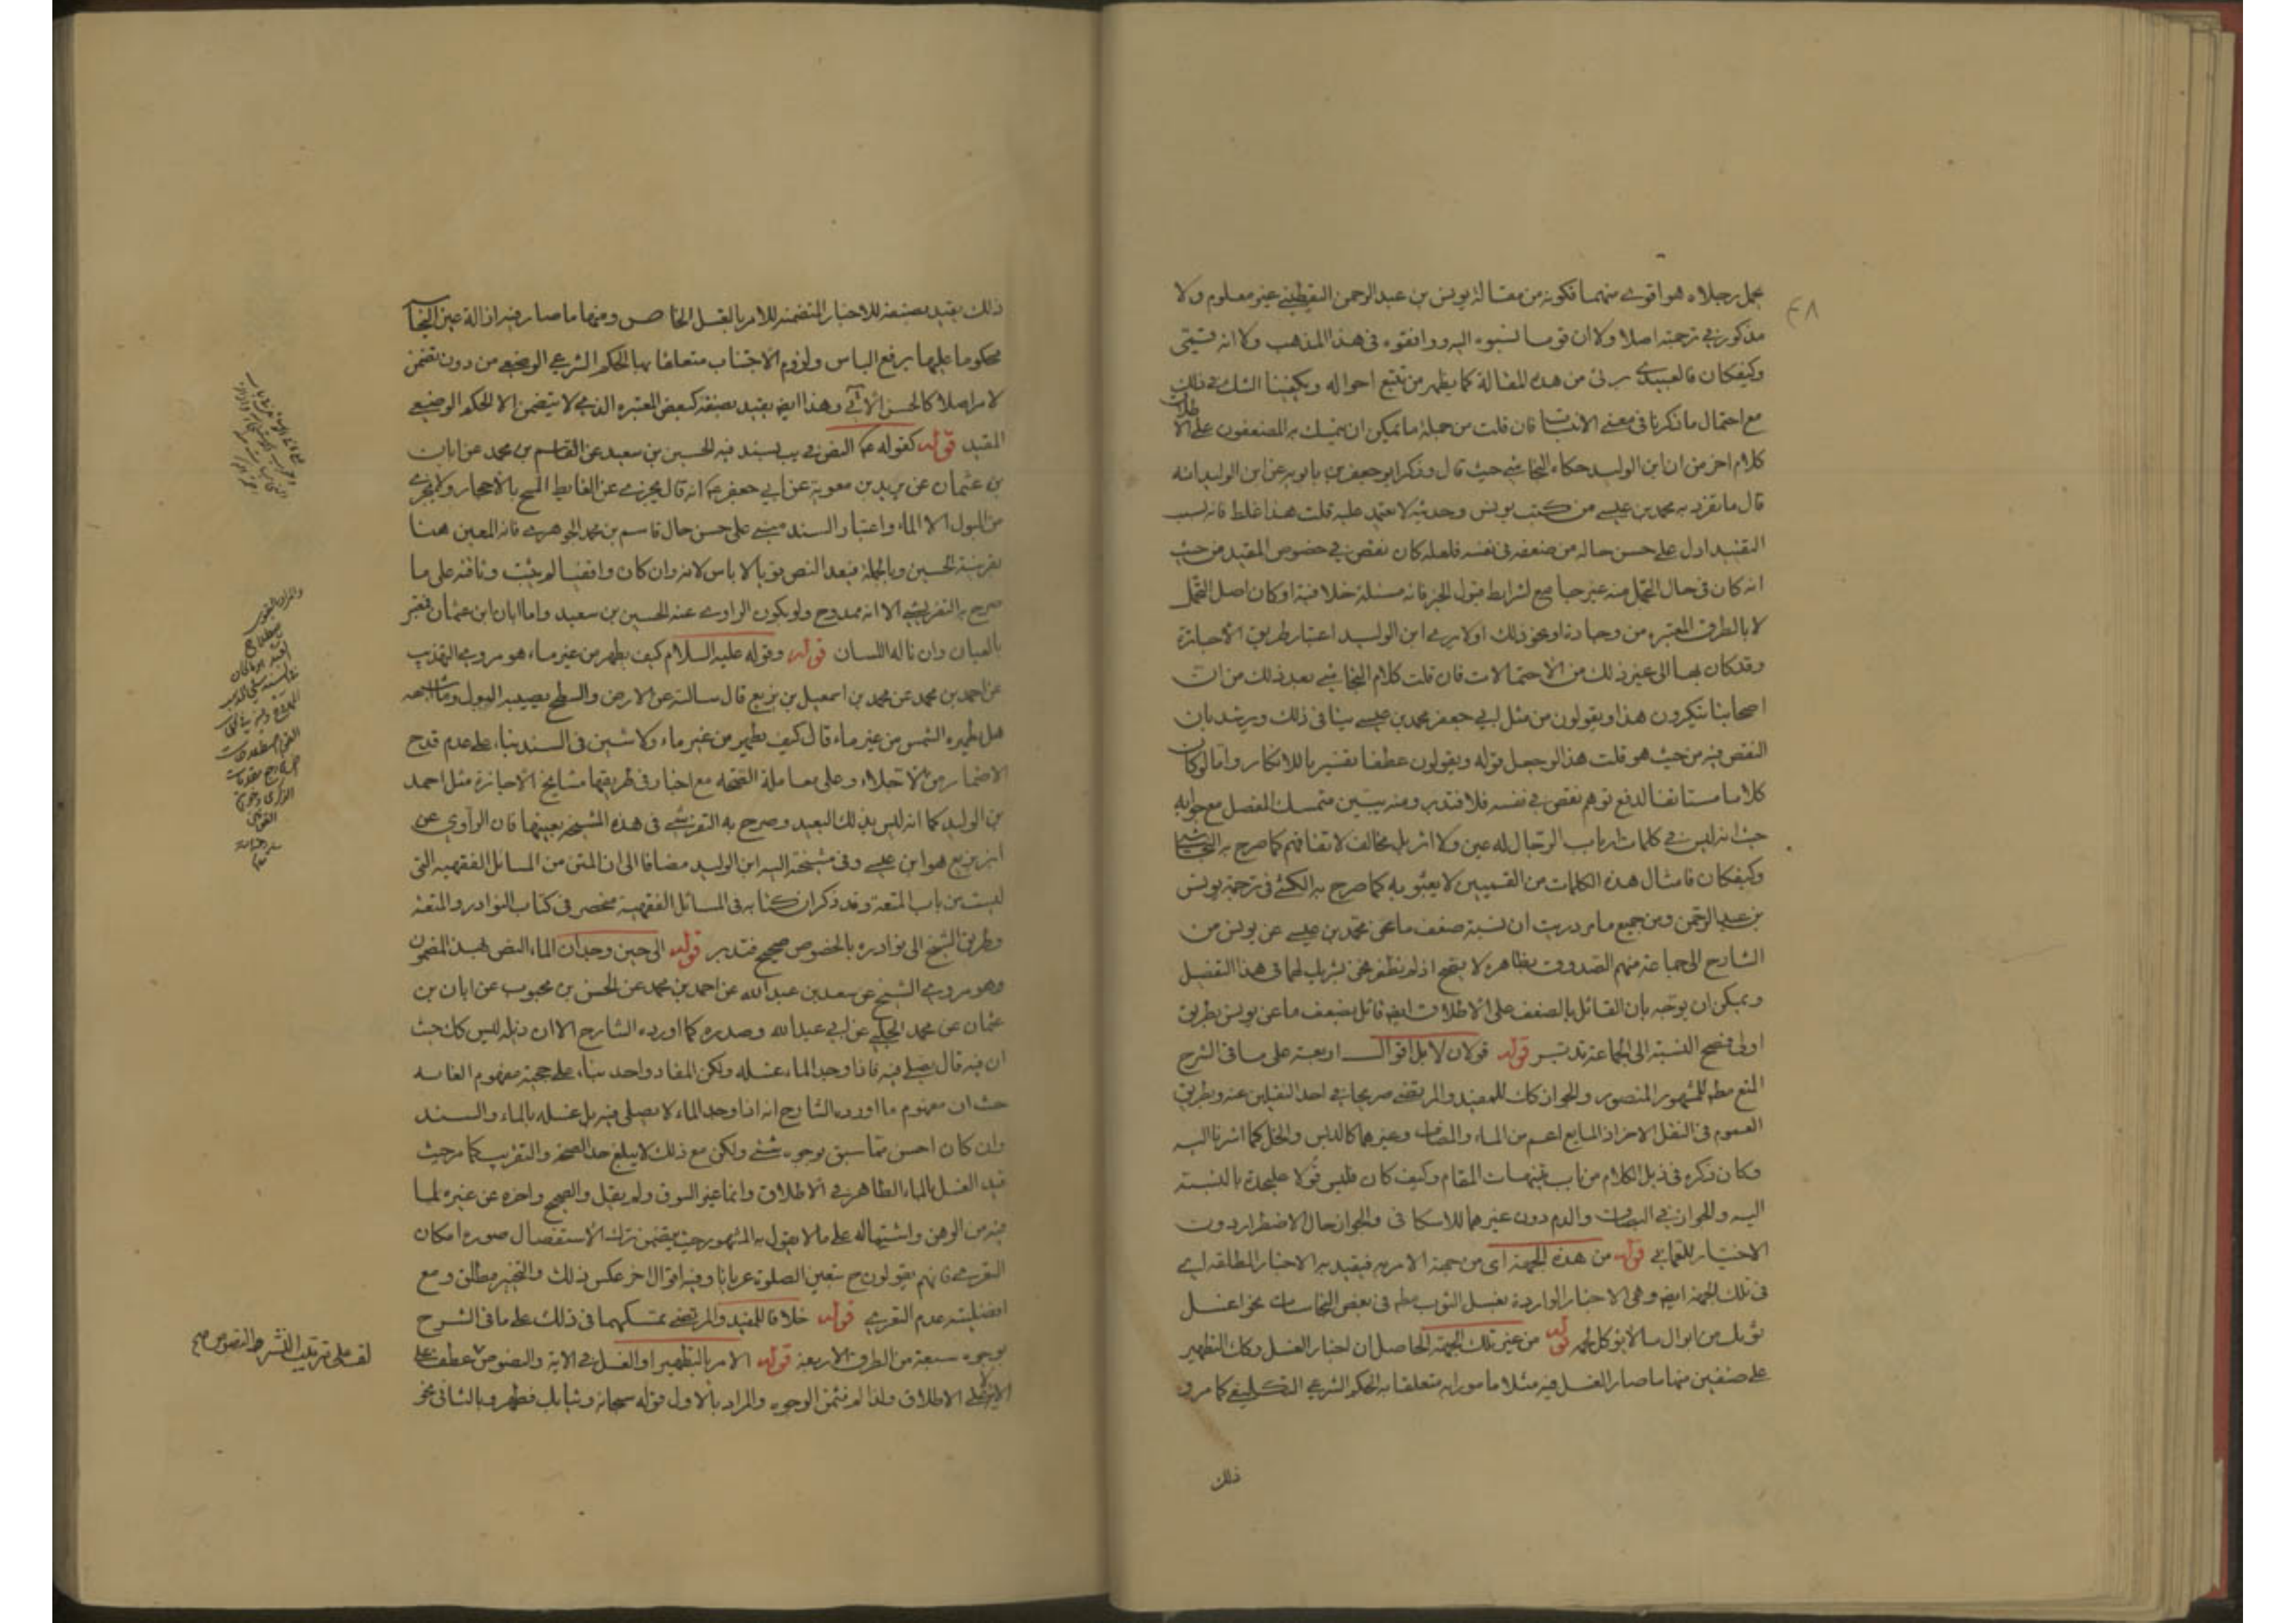 يجمل رجلاه هو اقوى منهما فكونه من مقالة يونس بن عبد الرحمن اليقطيني غير معلوم ولا
مذكور في ترجمته اصلا ولا ان قوما نسبوه اليه ووافقوه في هذا المذهب ولا انه
وكيفكان فالعبيدي برئ من هذه المقالة كما يظهر من تتبع احواله ويكفينا الشك في ذلك
مع احتمال ما ذكرنا في معنى الانتساب فان قلت من جملة ما يمكن ان يتمسك به المضعفون على الاطلاق
كلام اخر من ان ابن الوليد حكاه النجاشي حيث قال وذكر ابو جعفر بن بابويه عن ابن الوليد انه
قال ما تفرد به محمد بن عيسى من كتب يونس وحديثه لا يعتمد عليه قلت هذا غلط فانه بسبب
التقييد ادل على حسن حاله من ضعفه في نفسه فلعله كان نقص في خصوص المقيد من حيث
انه كان في حال التحمل منه غير جامع لشرايط قبول الخبر فانه مسئلة خلافية او كان اصل التحمل
لا بالطرق المعتبره من وجادة او نحو ذلك او لا يرى ابن الوليد اعتبار طريق الاجازة
وقد كان بها الى غير ذلك من الاحتمالات فان قلت كلام النجاشي بعد ذلك من ان
اصحابنا ينكرون هذا ويقولون من مثل ابي جعفر محمد بن عيسى ينافي ذلك ويرشد بان
النقص فيه من حيث هو قلت هذا لو جعل قوله ويقولون عطفا تفسيريا للانكار واما لو كان
كلاما مستانفا لدفع توهم نقص في نفسه فلا فتدبر ومنه يتبين متمسك المفصل مع جوابه
حيث انه ليس في كلمات ارباب الرجال له عين ولا اثر بل مخالف لاتفاقهم كما صرح به النجاشي
وكيفكان فامثال هذه الكلمات من القميين لا يعبؤ به كما صرح به الكشي في ترجمة يونس
بن عبد الرحمن ومن جميع ما مر دريت ان نسبة ضعف ما عن محمد بن عيسى عن يونس من
الشارح الى جماعة منهم الصدوق بظاهره لا يتجه اذ لم نظفر نحن بشريك لهما في هذا التفصيل
ويمكن ان يوجه بان القائل بالضعف على الاطلاق ايضا قائل بضعف ما عن يونس بطريق
اولى فصح النسبة الى الجماعة تدبر قوله قولان لا بل اقوال اربعة على ما في الشرح
المنع مطم للمشهور المنصور والجواز كك للمفيد والمرتضى صريحا في احد النقلين عنه وبطريق
العموم في النقل الاخر اذ المايع اعم من الماء والمضاف وغيرهما كالدبس والخل كما اشرنا اليه
وكان ذكره في ذيل الكلام من باب تتمة المقام وكيف كان فليس قولا عليحدة بالنسبة
اليه والجواز في البصاق والدم دون غيرهما للاسكافي والجواز حال الاضطرار دون
الاختيار للعماني قوله من هذه الجهة اى من جهة الامر به فيقيد به الاخبار المطلقة اي
في تلك الجهة ايضا وهي الاخبار الواردة بغسل الثوب مطم في بعض النجاسات نحو اغسل
ثوبك من ابوال ما لا يؤكل لحمه قوله من غير تلك الجهة الحاصل ان اخبار الغسل وكك التطهير
على صنفين منها ما صار الغسل فيه مثلا مامورا به متعلقا به الحكم الشرعي التكليفي كما مر و
ذلك
ذلك يقيد بصنيعة للاخبار المتضمنة للامر بالغسل الخاص ومنها ما صار فيه ازالة عين النجاسة
محكوما عليها برفع الباس ولزوم الاجتناب متعلقا بها الحكم الشرعي الوضعي من دون تضمن
لامر اصلا كالحسن الآتي وهذا ايضا يقيد بصنفه كبعض المعتبره الذي لا يتضمن الا للحكم الوضعي
المقيد قوله كقوله ع النص في يب بسند فيه الحسين بن سعيد عن القاسم بن محمد عن ابان
بن عثمان عن بريد بن معوية عن ابي جعفر ع انه قال يجزي عن الغايط المسح بالاحجار ولا يجزي
من البول الا الماء واعتبار السند مبني على حسن حال قاسم بن محمد الجوهري فانه المعين هنا
بقرينة الحسين وبالجملة فبعد النص قويا لا باس لانه وان كان واقفيا لم يثبت وثاقته على ما
صرح به التفريشي الا انه ممدوح ولو بكون الراوي عنه الحسين بن سعيد واما ابان ابن عثمان فمعتبر
بالعيان وان ناله اللسان قوله وقوله عليه السلام كيف يطهر من غير ماء هو مروي التهذيب
عن احمد بن محمد عن محمد بن اسمعيل بن بزيع قال سالته عن الارض والسطح يصيبه البول وما اشبهه
هل تطهره الشمس من غير ماء قال كيف يطهر من غير ماء ولا شين في السند بناء على عدم قدح
الاضمار من الاجلاء وعلى معاملة الصحة مع اخبار في طريقها مشايخ الاجازة مثل احمد
بن الوليد كما انه ليس بذلك البعيد وصرح به التفرشي في هذه المشيخة بعينها فان الراوي عن
ابن بزيع هو ابن عيسى وفي مشيخة اليه ابن الوليد مضافا الى ان المتن من المسائل الفقهيه التي
ليست من باب المتعة وقد ذكر ان كتابه في المسائل الفقهية منحصر في كتاب النوادر والمتعة
وطريق الشيخ الى نوادره بالخصوص صحيح فتدبر قوله الى حين وجدان الماء النص بهذا المضمون
وهو مروي الشيخ عن سعد بن عبد الله عن احمد بن محمد عن الحسن بن محبوب عن ابان بن
عثمان عن محمد الحلبي عن ابي عبد الله وصدره كما اورده الشارح الا ان ذيله ليس كك حيث
ان فيه قال يصلي فيه فاذا وجد الماء غسله ولكن المفاد واحد بناء على حجية مفهوم الغاية
حيث ان مفهوم ما اورده الشارح انه اذا وجد الماء لا يصلي فيه بل غسله بالماء والسند
وان كان احسن مما سبق بوجوه شتى ولكن مع ذلك لا يبلغ حد الصحة والتقريب كما مر حيث
قيد الغسل بالماء الظاهر في الاطلاق وانما غير السوق ولم يقل والصحيح واخره عن غيره لما
فيه من الوهن واشتماله على ما لا يقول به المشهور حيث يتضمن ترك الاستفصال صورة امكان
التعري فانهم يقولون ح بتعين الصلوة عريانا وفيه اقوال اخر عكس ذلك والتخير مطلق ومع
افضلية عدم التعري قوله خلافا للمفيد والمرتضى تمسكهما في ذلك على ما في الشرح
بوجوه سبعة من الطرق الاربعة قوله الامر بالتطهير او الغسل في الاية والنصوص عطف على
الاية على الاطلاق ولذا لم نثمن الوجوه والمراد بالاول قوله سبحانه وثيابك فطهر وبالثاني نحو
لف على ترتيب النشر والنصوص صح